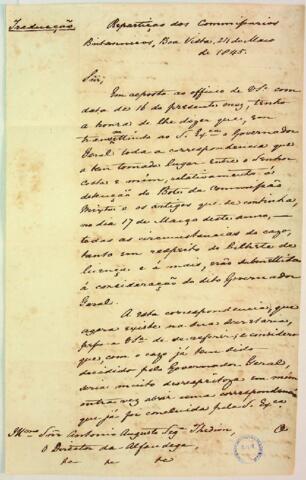 Traducção
Repartiçaõ dos Commissarios
Britannicos, Boa Vista, 24 de Maio
de 1845.
Sñr,
Em resposta ao officio de VSª com
data de 16 do presente mez, tenho
a honra de lhe dizer que, em
transmittindo ao S. Exª o Governador
Geral toda a correspondencia que
a tem tomado lugar entre o Senhor
Costa e mim, relativamente á
detençaõ do Bote da Commissaõ
Mixta e os artigos que se continha,
no dia 17 de Março deste anno,
todas as circumstancias do cazo,
tanto em respeito do Bilhete de
licença e á mais, eraõ submettidas
á consideraçaõ do dito Governador
Geral.
A esta correspondencia, que
agora existe na sua secretaria,
peço a VSª de se referir; e considero
que, com o cazo já tem sido
decidido pelo Governador Geral,
seria muito desrespeitoza em mim
outra vez abrir uma correspondencia
que já foi concluida pelo S. Exª
Illmo Sñr Antonio Augusto Seg.
O Director da Alfandega,
&c &c &c